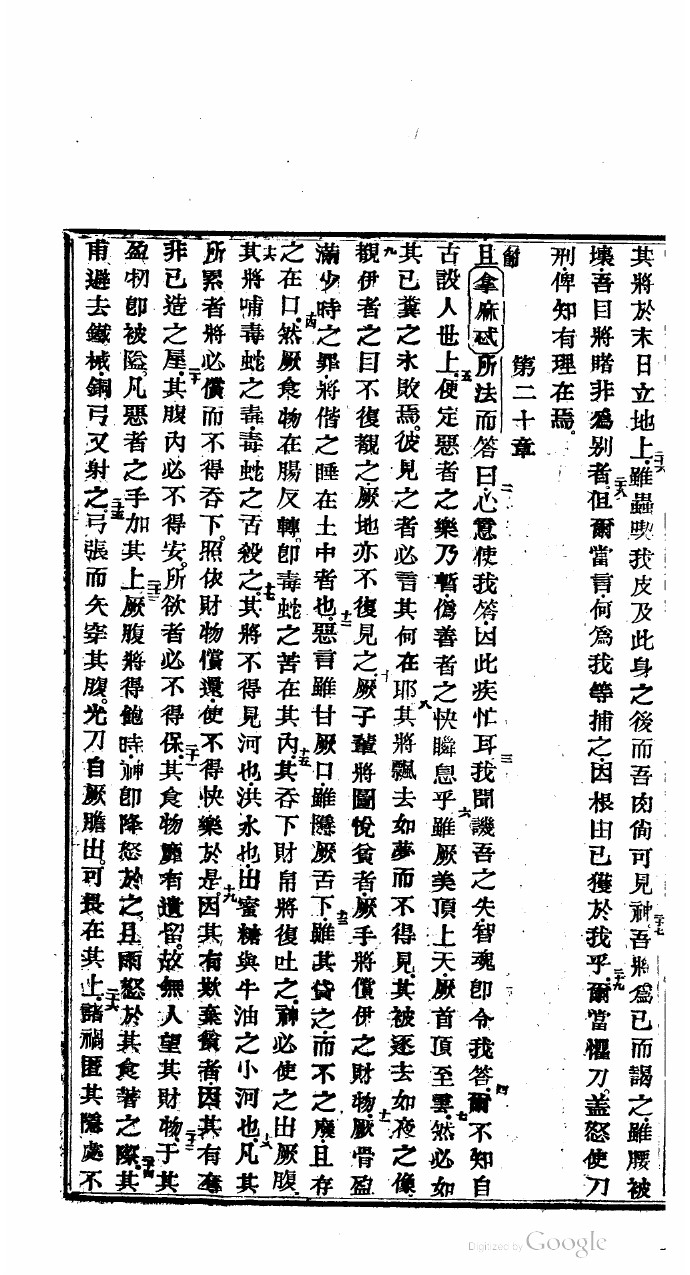 其將於末日立地上雖蟲喫我皮及此身之後而吾肉尚可見神吾將爲已而謁之雖腰被
壞吾目將睹非爲別者但爾當言何爲我等捕之因根由已獲於我乎爾當懼刀盖怒使刀
刑俾知有理在焉
第二十章
且拿麻忒所法而答曰心意使我答因此疾忙耳我聞譏吾之失智魂卽令我答爾不知自
古設人世上便定惡者之樂乃暫僞善者之快瞬息乎雖厥美頂上天厥首頂至雲然必如
其已糞之永敗焉彼見之者必言其何在耶其將飄去如夢而不得見其被逐去如夜之像
觀伊者之目不復覩之厥地亦不復見之厥子輩將圖悅貧者厥手將償伊之財物厥骨盈
滿少時之罪將偕之睡在土中者也惡言雖甘厥口雖隱厥舌下雖其貸之而不之廢且存
之在口然厥食物在腸反轉卽毒蛇之苦在其內其吞下財帛將復吐之神必使之出厥腹
其將哺毒蛇之毒毒蛇之舌殺之其將不得見河也洪水也出蜜糖與牛油之小河也凡其
所累者將必償而不得吞下照依財物償還使不得快樂於是因其有欺棄貧者因其有奪
非已造之屋其腹內必不得安所欲者必不得保其食物靡有遺留故無人望其財物于其
盈牣卽被隘凡惡者之手加其上厥腹將得飽時神卽降怒於之且雨怒於其食著之際其
甫過去鐵械銅弓又射之弓張而矢穿其腹光刀自厥膽出可畏在其上諸禍匿其隱處不
Digitized by Google